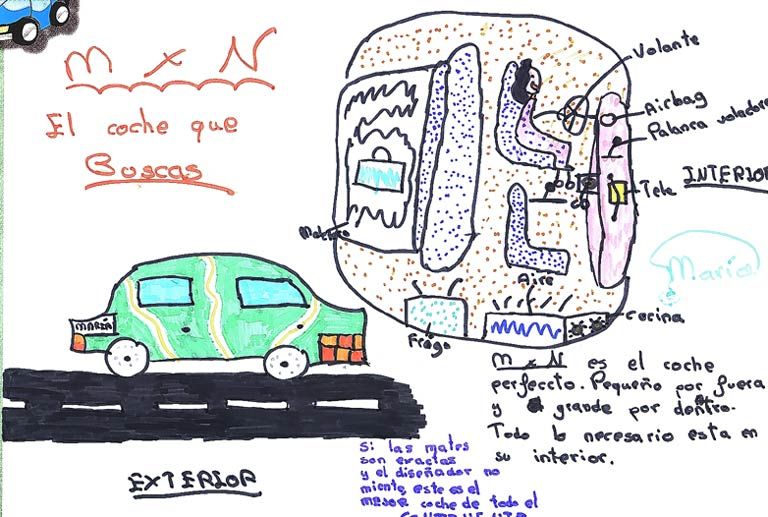 M x N
El coche que
Buscas
Volante
Airbag
Palanca voladora
INTERIOR
Tele
Maletero
María
Aire
Cocina
Frigo
MARÍA
M x N es el coche
perfeccto. Pequeño por fuera
y grande por dentro.
Todo lo necesario esta en
su interior.
EXTERIOR
Si las mates
son exactas
y el diseñador no
miente, este es el
mejor coche de todo el